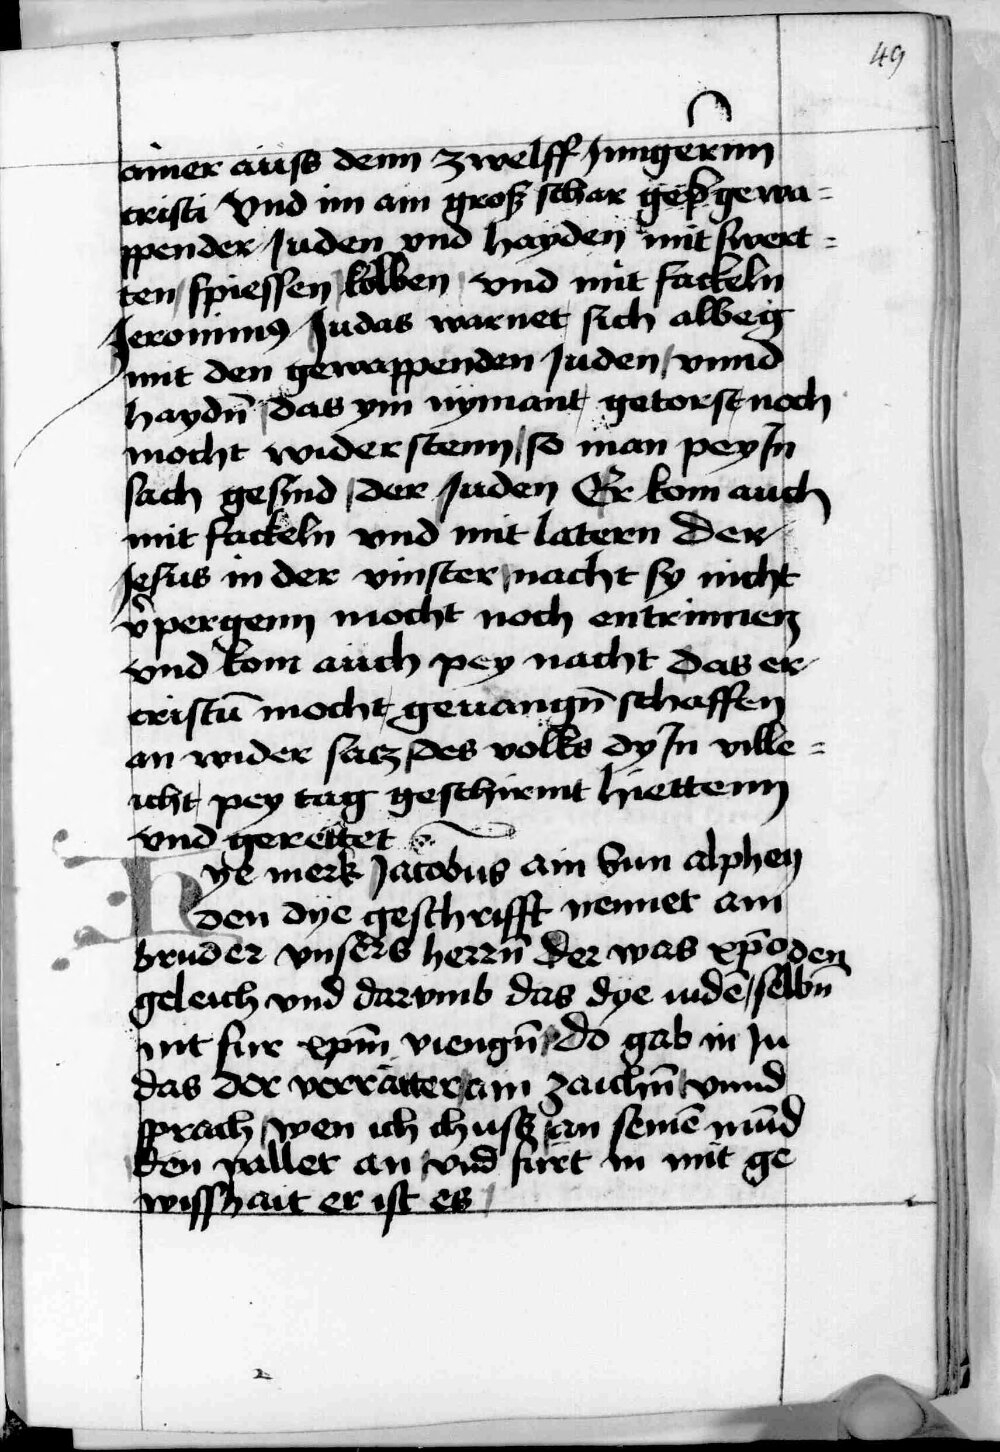 49
ainer auss denn zwelff Jungernn
cristi Vnd im ain groß schar gewa=
ppender Juden vnd hayden mit swert=
ten / spiessen / kolben / vnd mit fackeln
Jeronimus Judas warnet sich albeg
mit den gewappenden Juden / vnnd
haydn̄ / das ym nymant / getorst noch
mocht widerstenn / so man pey In
sach gesind / der Juden Er kom auch
mit fackeln vnd mit latern Der
Jesus in der vinster / nacht sy nicht
v̄pergenn mocht noch entrinnen
vnd kom auch pey nacht das er
cristū mocht / geuangn̄ schaffen
an wider satz / des volks dy In ville=
icht / pey tag geschirmt hiettenn
vnd gerettet
Hye merk Jacobus ain Sun alphey
den dye geschrifft nennet ain
bruder vnsers herrn̄ Der was xp̄o den
geleich vnd darvmb das dye iudē / selbn̄
nit fur xp̄m viengn̄ / do gab in Ju
das der verratter / ain zaichn̄ / vnnd
sprach / wen ich chuss / an seinē mūnd
den vallet an / vnd fürt in mit ge
wisshait er ist es /